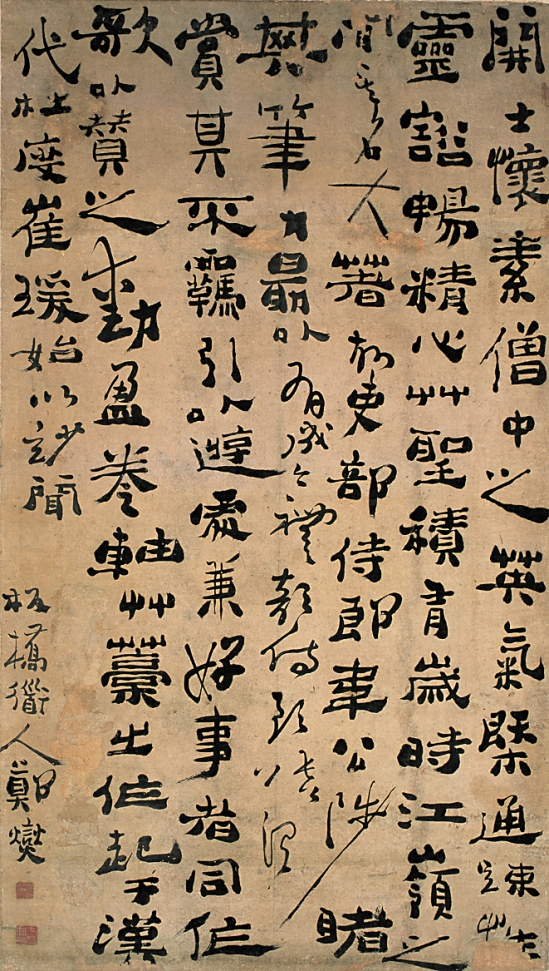 開士懷素僧中之英氣槩通疎性
靈豁暢精心艸聖積有歲時江嶺之
間其名大著故吏部侍郎韋公陟睹
其筆力勗以有成今禮部侍郎張公謂
賞其不羈引以遊處兼好事者同作
歌以贊之動盈卷軸艸藁之作起于漢
代杜度崔瑗始以妙聞
板橋衜人鄭燮